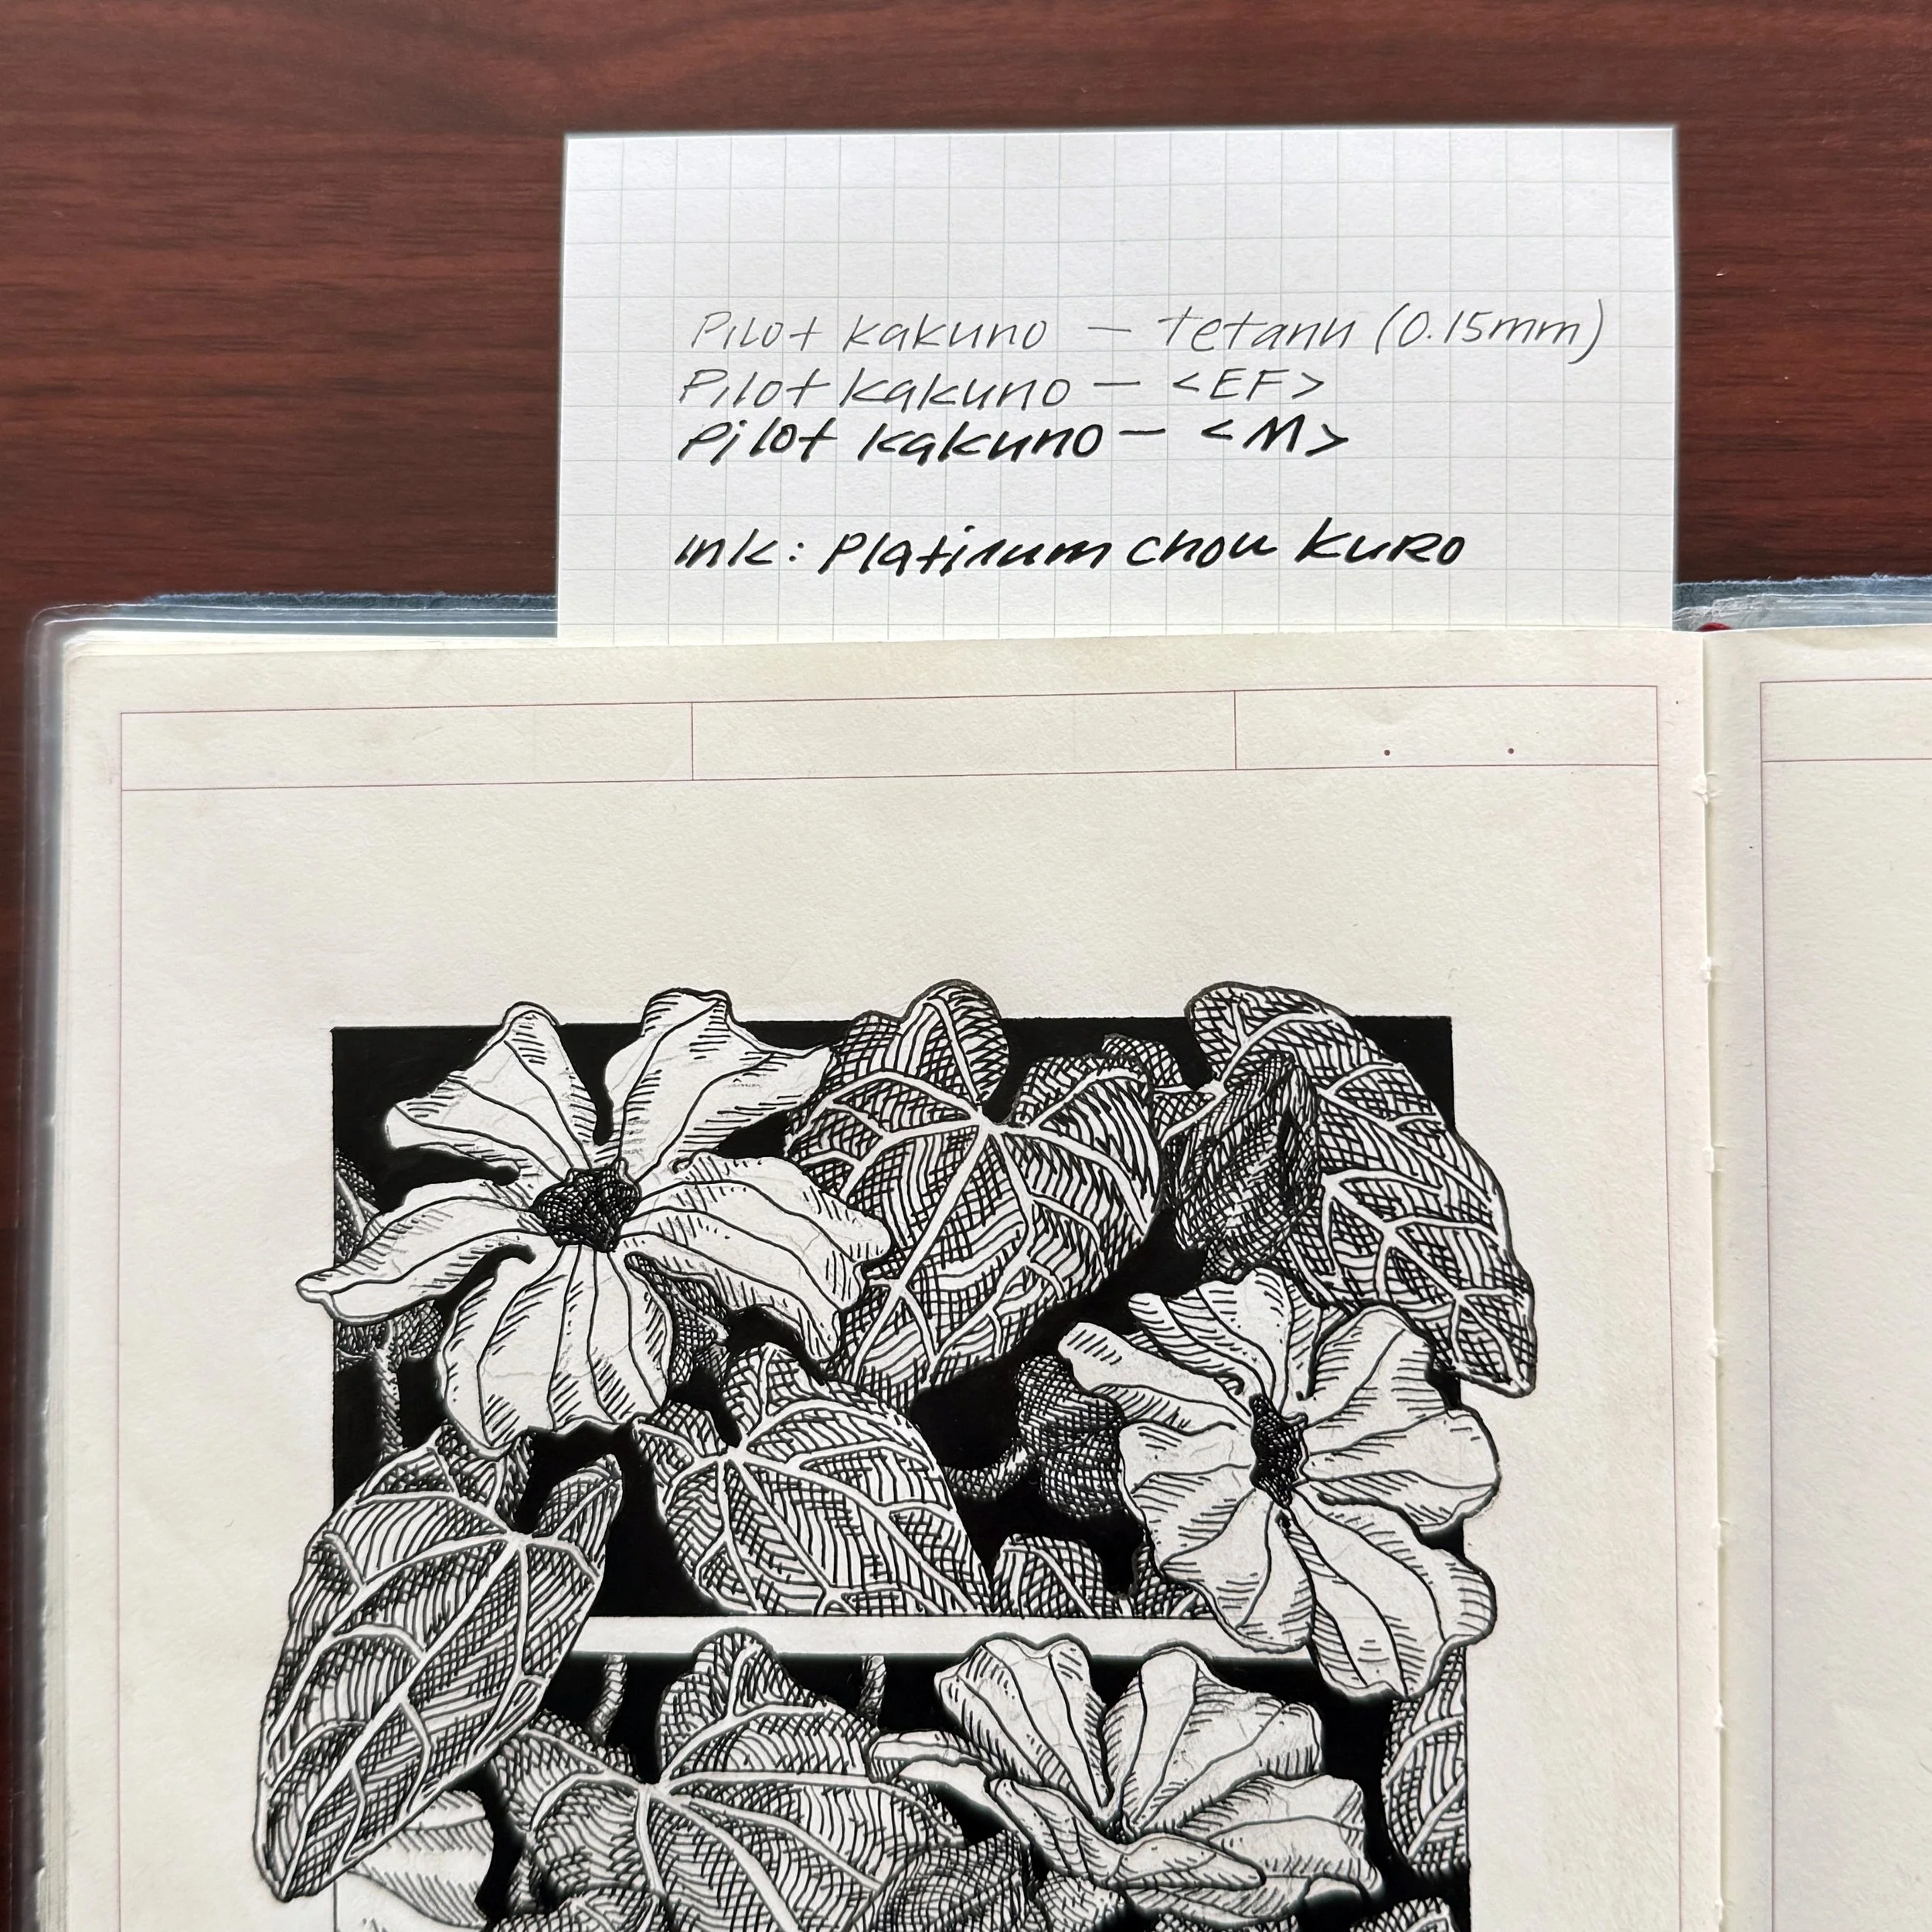 Pilot kakuno — tetann (0.15mm)
Pilot kakuno — <EF>
Pilot kakuno — <M>
ink: Platinum chou kuro